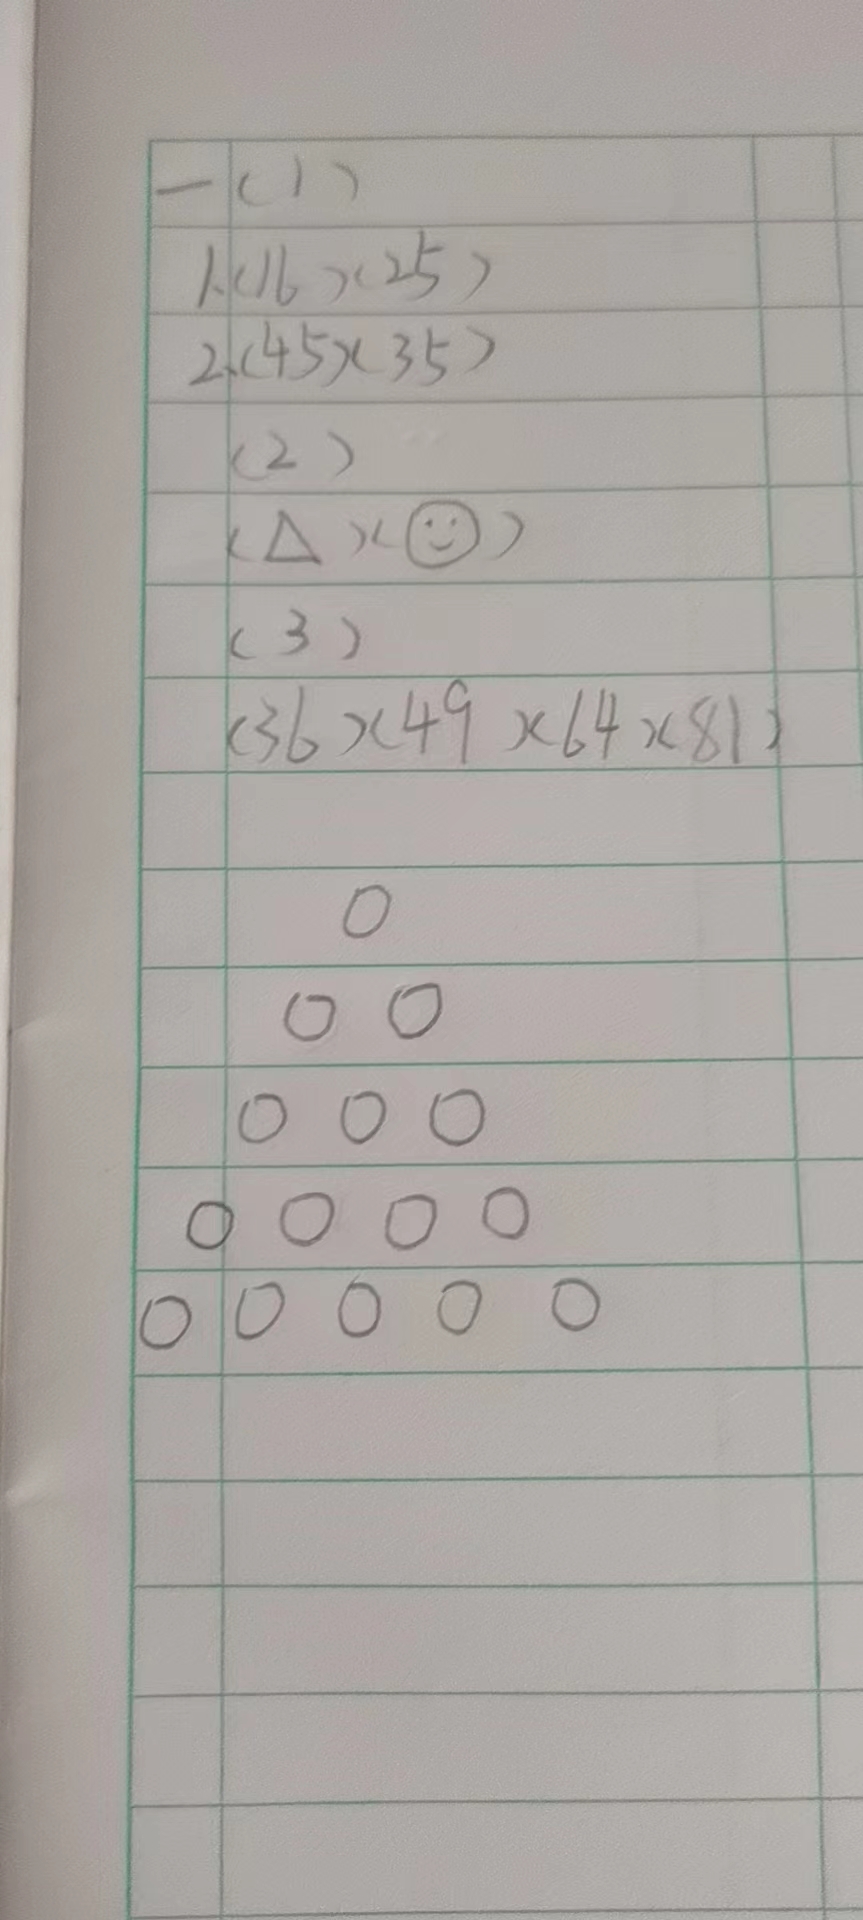 一(1)
1.(16)(25)
2.(45)(35)
(2)
(△)(☺)
(3)
(36)(49)(64)(81)
○
○ ○
○ ○ ○
○ ○ ○ ○
○ ○ ○ ○ ○